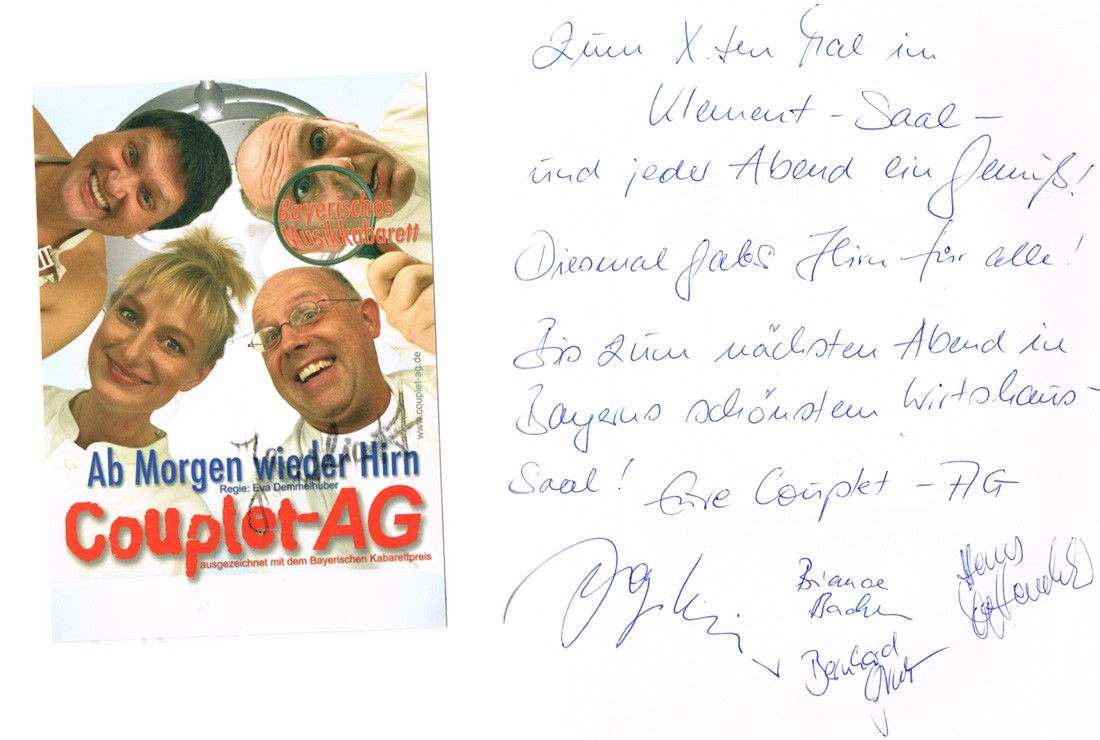 Bayerisches
Musikkabarett
www.couplet-ag.de
Ab Morgen wieder Hirn
Regie: Eva Demmelhuber
Couplet-AG
ausgezeichnet mit dem Bayerischen Kabarettpreis
Zum X.ten Mal im
Klement-Saal -
und jeder Abend ein Genuß!
Diesmal gabs Hirn für alle!
Bis zum nächsten Abend in
Bayerns schönstem Wirtshaus-
Saal! Eure Couplet-AG
Bianca
Bachm
Bernhard